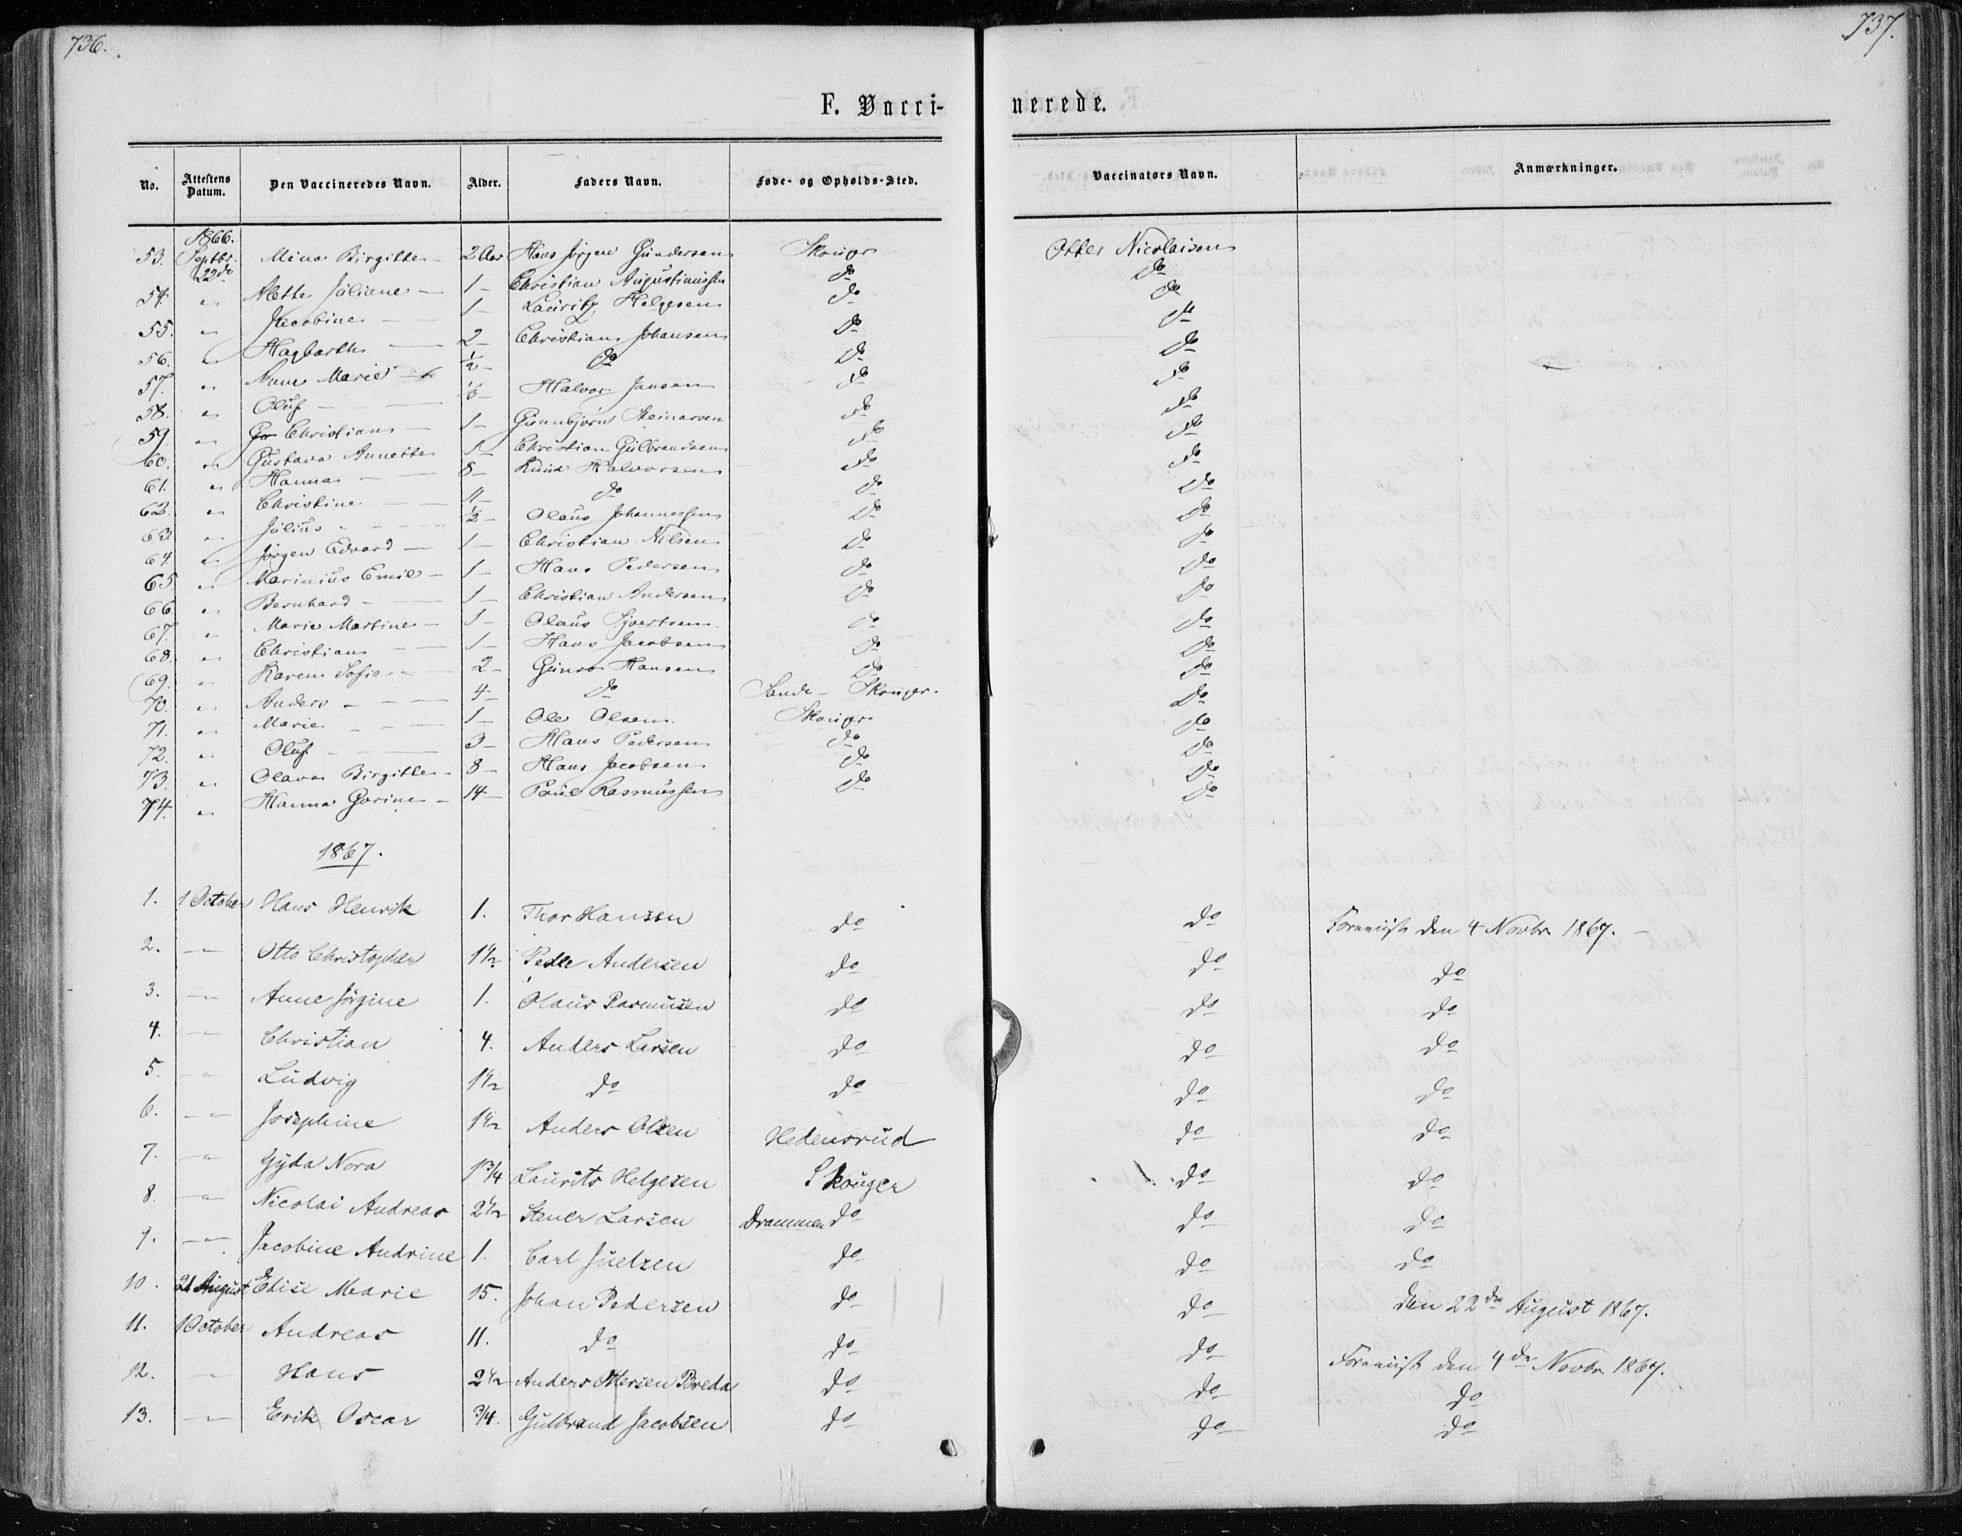 736.
737.
F. Vacci-
nerede.
No. Attestens Datum. Den Vaccineredes Navn. Alder. Faders Navn. Føde- og Opholds-Sted. Vaccinators Navn. Anmærkninger.
1866.
53. Septbr. 22de Mina Birgitte 2 Aar Hans Jørgen Gundersen Skouger Otter Nicolaisen
54. " Mette Juliane 1 Christian Augustinussen do do
55. " Jacobine 1 Lauritz Helgesen do do
56. " Hagbarth 2 Christian Johansen do do
57. " Anne Marie 1/2 do do do
58. " Oluf Halvor Jansen do do
59. " Christian 1 Gunbjørn Steinarsen do do
60. " Gustava Annette 1 Christian Gulbrandsen do do
61. " Hanna 8 Knud Halvorsen do do
62. " Christine 11 do do do
63. " Julius 1/2 Olaus Johannessen do do
64. " Jørgen Edvard 1 Christian Nilsen do do
65 " Marinius Emil 1 Hans Pedersen do do
66. " Bernhard 1 Christian Andersen do do
67. " Marie Martine 1 Olaus Syvertsen do do
68. " Christian 1 Hans Jacobsen do do
69. " Karen Sofie 2 Gunro Hansen do do
70. " Anders 4 do Sande - Skouger. do
71. " Marie 1 Ole Olsen Skouger do
72. " Oluf 3 Hans Pedersen do do
73. " Olava Birgitte 8 Hans Jacobsen do do
74. " Hanna Gorine 14 Poul Rasmussen do do
1867.
1. 1 October Hans Henrik 1. Thor Hansen do do den 4 Novbr 1867.
2. " Otto Christopher 1 1/2 Peder Andersen do do do
3. " Anne Jørgine 1. Olaus Rasmusen do do do
4. " Christian 4. Anders Larsen do do do
5. " Ludvig 1 1/2 do do do do
6. " Josephine 1 1/2 Anders Olsen Hedensrud do do
7. " Gyda Nora 1 3/4 Laurits Helgesen Skouger do do
8. " Nicolai Andreas 2 1/2 Stener Larsen Drammen do do do
9. " Jacobine Andrine 1. Carl Juelsen do do do
10. 21 August Elise Marie 15. Johan Pedersen do do den 22de August 1867.
11. 1 October Andreas 11. do do do den 4de Novbr 1867.
12. " Hans 2 1/2 Anders Ottersen Breda do do do
13. " Erik Oscar 3/4. Gulbrand Jacobsen do do do